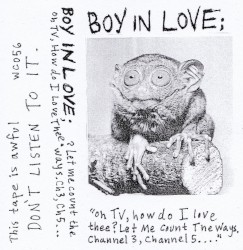 BOY IN LOVE;
"oh TV, how do I love
thee? Let Me Count The Ways,
Channel 3, Channel 5...."
BOY IN LOVE; ? Let me count the
oh TV, How do I Love Thee Ways. Ch3, Ch5...
This tape is awful WC056
DON'T LISTEN TO IT.